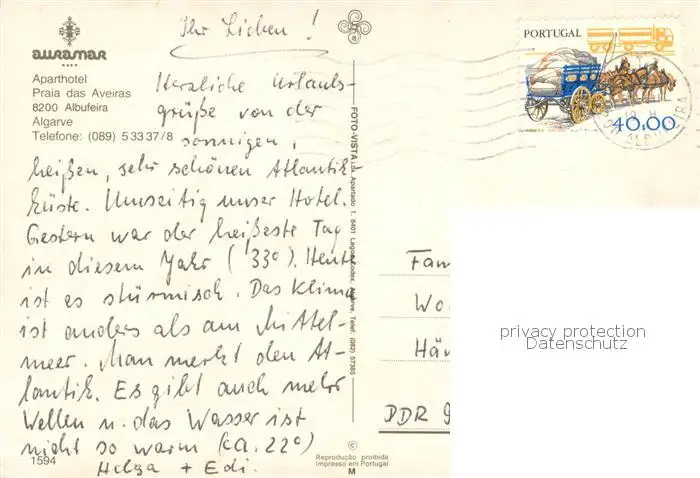 auramar
Aparthotel
Praia das Aveiras
8200 Albufeira
Algarve
Telefone: (089) 5 33 37/8
Ihr Lieben!
Herzliche Urlaubs-
grüße von der
sonnigen,
heißen, sehr schönen Atlantik
küste. Umseitig unser Hotel.
Gestern war der heißeste Tag
in diesem Jahr (33°). Heute
ist es stürmisch. Das Klima
ist anders als am Mittel-
meer. Man merkt den At-
lantik. Es gibt auch mehr
Wellen u. das Wasser ist
nicht so warm (ca. 22°)
Helga + Edi.
1594
FOTO-VISTA Lda. Apartado 1, 8401 Lagoa Codex, Algarve, Telef. (082) 57385
© 
Reprodução proibida
Impresso em Portugal
M
PORTUGAL
40,00
Fam
Wo
Hä
DDR 9
privacy protection
Datenschutz